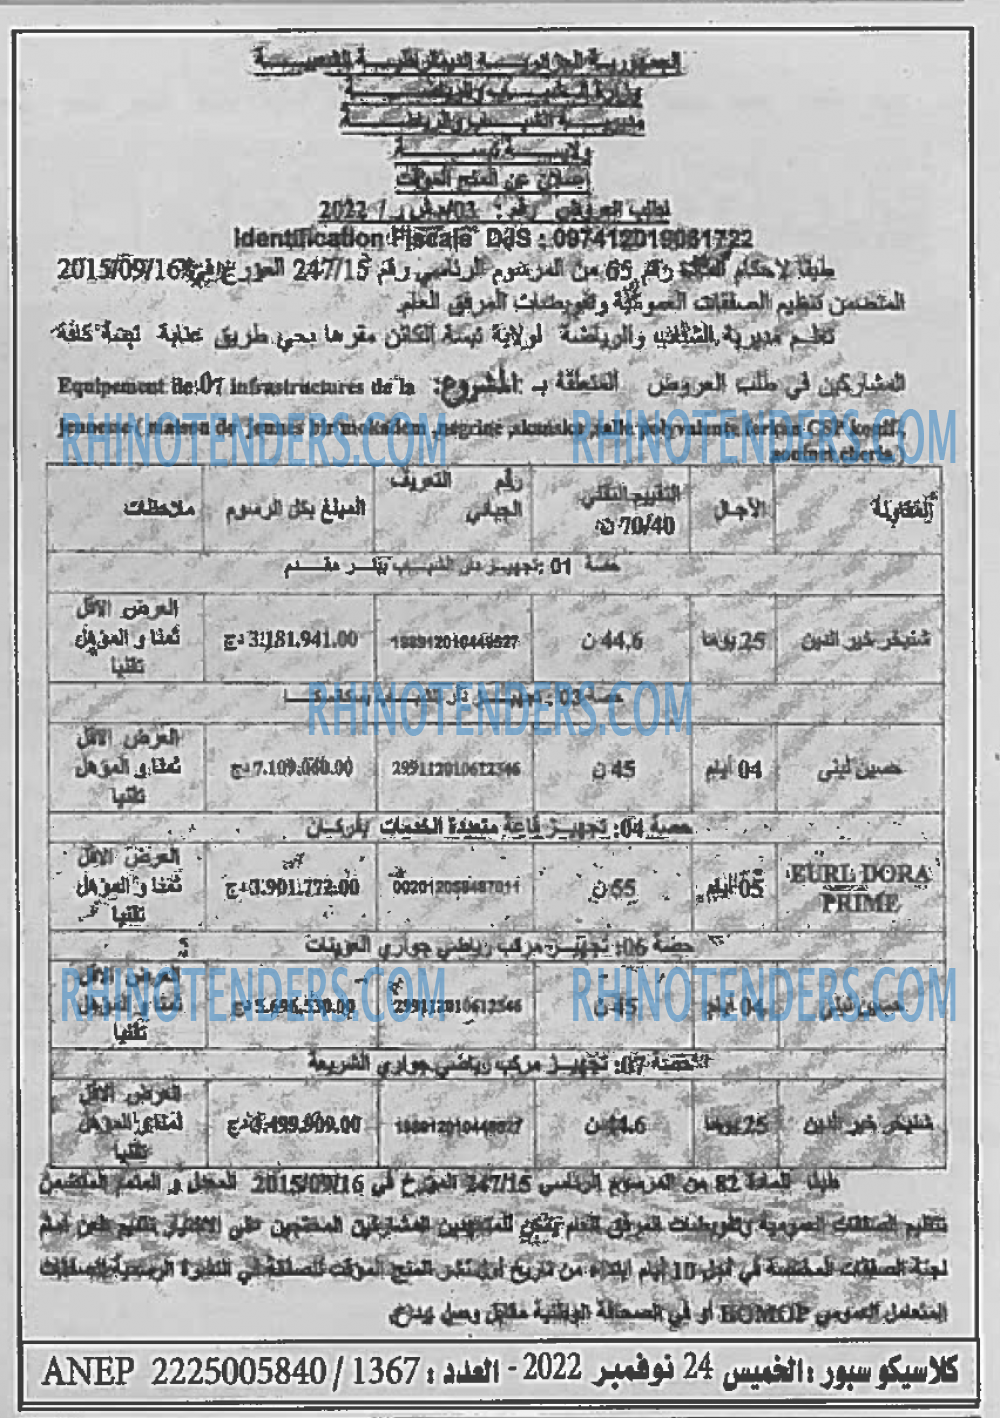 الجمهورية الجزائرية الديمقراطية الشعبية
وزارة الشباب والرياضة
مديرية الشباب والرياضة
ولاية تبسة
إعلان عن المنح المؤقت
لطلب العروض رقم: 03/م ش ر / 2022
Identification Fiscale DJS : 097412019081722
طبقا لاحكام المادة رقم 65 من المرسوم الرئاسي رقم 247/15 المؤرخ في 2015/09/16
المتضمن تنظيم الصفقات العمومية وتفويضات المرفق العام
تعلم مديرية الشباب والرياضة لولاية تبسة الكائن مقرها بحي طريق عنابة تبسة كافة
المشاركين في طلب العروض المتعلقة بـ المشروع: Equipement de 07 infrastructures de la
jeunesse ( maison de jeunes bir mokadem ,negrine ,
RHINOTENDERS.COM RHINOTENDERS.COM
المقاولة الآجال التقييم التقني 70/40 ن رقم التعريف الجبائي المبلغ بكل الرسوم ملاحظات
حصة 01 :تجهيز دار الشباب ببئر مقدم
خير الدين 25 يوما 44,6 ن 3.181.941.00 دج العرض الاقل ثمنا و المؤهل تقنيا
حصة 03 : تجهيز دار الشباب
RHINOTENDERS.COM
حسين ليلى 04 ايام 45 ن 299112010612346 دج العرض الاقل ثمنا و المؤهل تقنيا
حصة 04: تجهيز قاعة متعددة الخدمات بفركان
EURL DORA PRIME 05 ايام 55 ن 002012058487011 .901.772.00 دج العرض الاقل ثمنا و المؤهل تقنيا
حصة 06: تجهيز مركب رياضي جواري العوينات
RHINOTENDERS.COM RHINOTENDERS.COM
حسين ليلى 04 ايام 45 ن 299112010612346 دج العرض الاقل ثمنا و المؤهل تقنيا
الحصة 07: تجهيز مركب رياضي جواري الشريعة
خير الدين 25 يوما 44.6 ن .499.909.00 دج العرض الاقل ثمنا و المؤهل تقنيا
طبقا للمادة 82 من المرسوم الرئاسي 247/15 المؤرخ في 2015/09/16 المعدل و المتمم المتضمن
تنظيم الصفقات العمومية وتفويضات المرفق العام يمكن للمتعهدين المشاركين المحتجين على الاختيار تقديم طعن امام
لجنة الصفقات المختصة في أجل 10 أيام ابتداء من تاريخ أول نشر المنح المؤقت للصفقة في النشرة الرسمية للصفقات
المتعامل العمومي BOMOP أو في الصحافة الوطنية مقابل وصل إيداع.
كلاسيكو سبور : الخميس 24 نوفمبر 2022 - العدد : 1367 / ANEP 2225005840